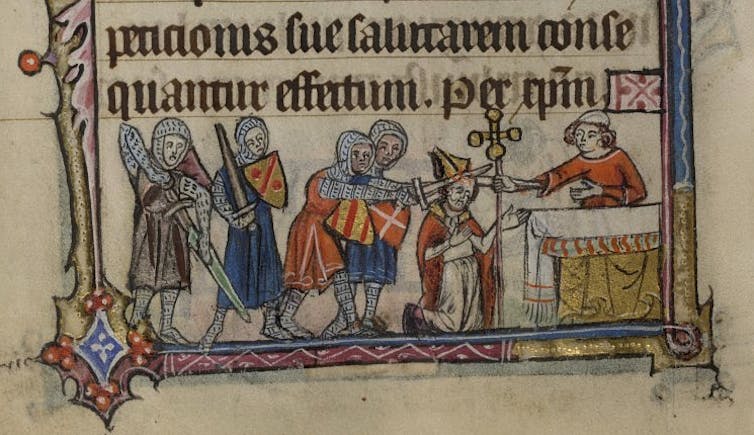 peticionis sue salutarem conse
quantur effectum. Per xp̅m